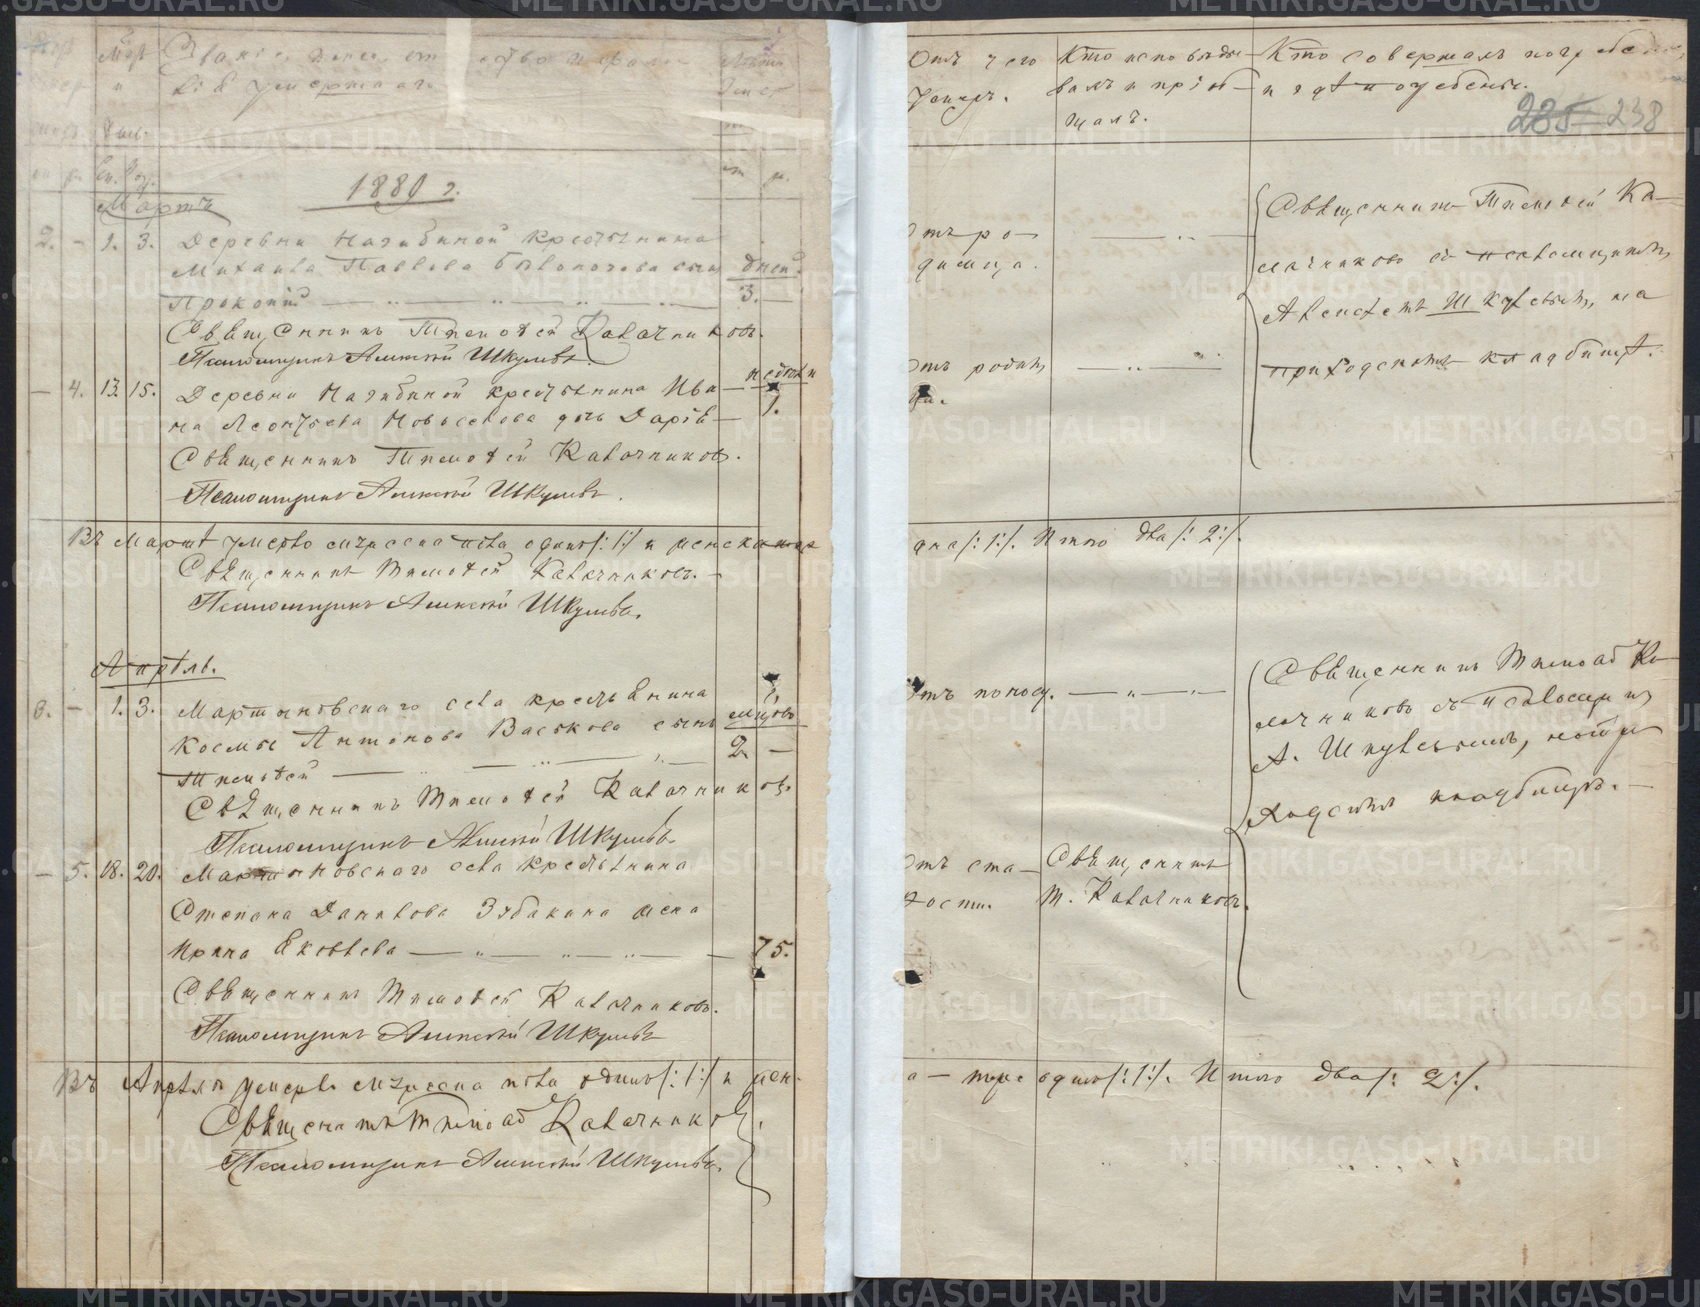 Мѣся
Званіе, имя, отчество и фами-
лія умершаго.
Лѣта
Умер
Числ.
м. ж.
1880 г.
Мартъ
2. - 1. 3. Деревни Назибиной крестьянина
Михаила Павлова сынъ дней.
Прокопій — „ — „ — „ — 3. —
Священникъ Тимофей Калачниковъ.
Псаломщикъ Алексѣй Шкулевъ.
недѣли
- 4. 13. 15. Деревни Назибиной крестьянина Ива-
на Леонтьева Новоселова дочь Дарія — 1.
Священникъ Тимофей Калачниковъ.
Псаломщикъ Алексѣй Шкулевъ.
Въ Мартѣ умерло мужеска пола одинъ /:1:/ и женска
Священникъ Тимофей Калачниковъ.
Псаломщикъ Алексѣй Шкулевъ.
Апрѣль.
3. - 1. 3. Мартыновскаго села крестьянина
Космы Антонова Васькова сынъ мѣсяц
Тимофей — „ — „ — 2. —
Священникъ Тимофей Калачниковъ.
Псаломщикъ Алексѣй Шкулевъ.
- 5. 18. 20. Мартыновскаго села крестьянина
Степана Данилова жена
Ирина Яковлева — „ — „ — 75.
Священникъ Тимофей Калачниковъ.
Псаломщикъ Алексѣй Шкулевъ
Въ Апрѣлѣ умерло мужеска пола одинъ /:1:/ и жен-
Священникъ Тимофей Калачниковъ.
Псаломщикъ Алексѣй Шкулевъ.
Отъ чего
умеръ.
Кто исповѣды-
валъ и пріоб-
щалъ.
Кто совершалъ погребеніе
и гдѣ погребены.
285 238
отъ ро-
димца.
— „ —
Священникъ Тимофей Ка-
лачниковъ съ псаломщикомъ
Алексѣемъ Шкулевымъ, на
приходскомъ кладбищѣ.
отъ родим
ца.
— „ —
дна /:1:/. Итого два /:2:/.
отъ понос. — „ — „ —
Священникъ Тимофей Ка-
лачниковъ съ псаломщик
А. Шкулевымъ, на при
ходскомъ кладбищѣ. —
отъ ста-
рости.
Священникъ
Т. Калачниковъ.
а — одинъ /:1:/. Итого два /:2:/.
METRIKI.GASO-URAL.RU